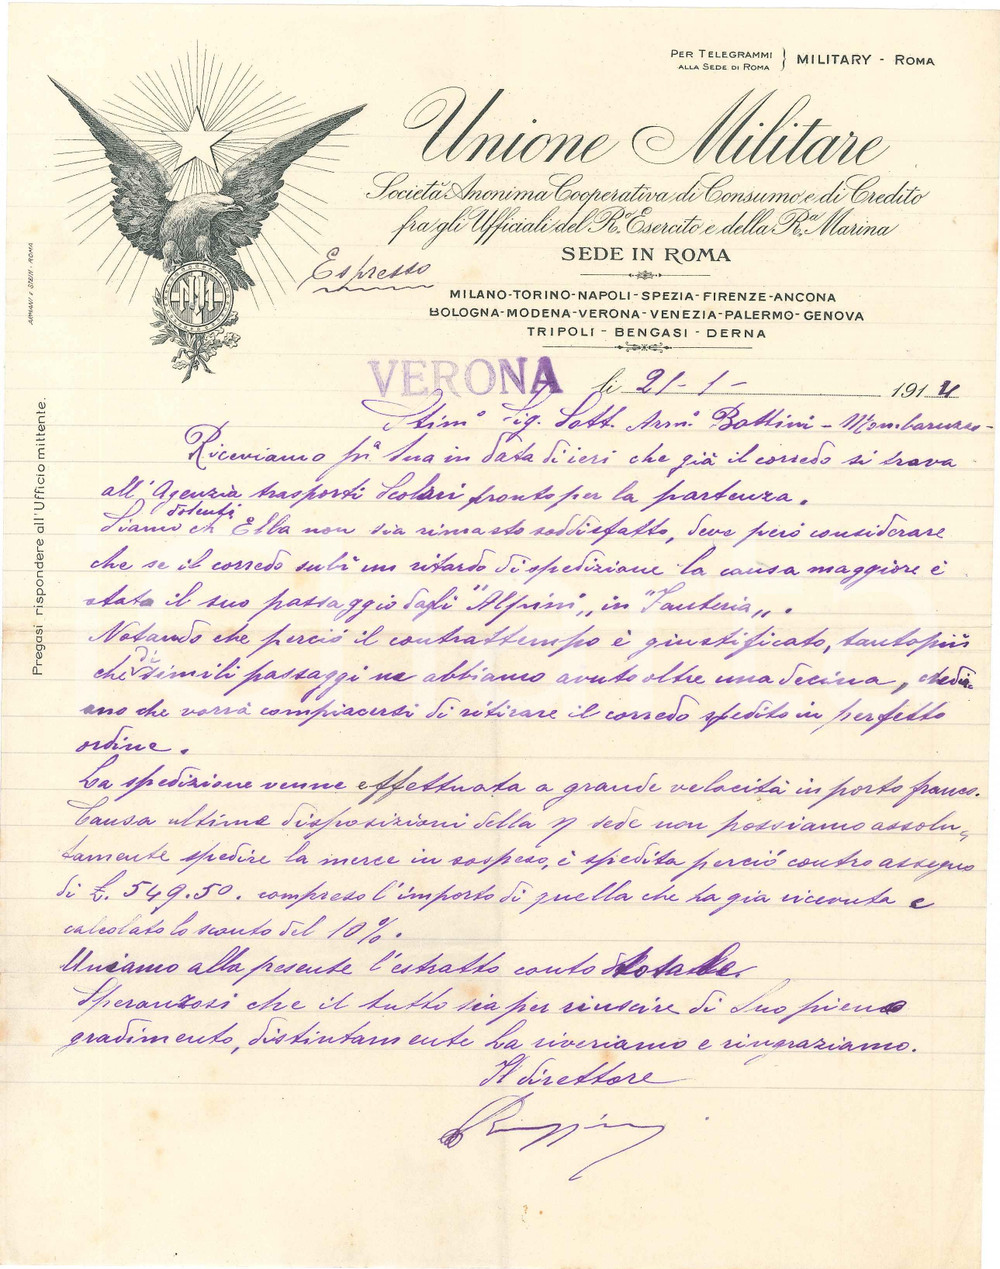 PER TELEGRAMMI
ALLA SEDE DI ROMA } MILITARY - ROMA
Unione Militare
Società Anonima Cooperativa di Consumo e di Credito
fra gli Ufficiali del R.º Esercito e della R.ª Marina
SEDE IN ROMA
Espresso
MILANO-TORINO-NAPOLI-SPEZIA-FIRENZE-ANCONA
BOLOGNA-MODENA-VERONA-VENEZIA-PALERMO-GENOVA
TRIPOLI - BENGASI - DERNA
ARMANI e STEIN - ROMA
Pregasi rispondere all'Ufficio mittente.
VERONA li 21-1- 1914
Stimº Sig. Sott. Arm. Bottini - Mombaruzzo -
Riceviamo pª Sua in data di ieri che già il corredo si trova
all'Agenzia trasporti Scolari pronto per la partenza.
Siamo dolenti ch Ella non sia rimasto soddisfatto, deve però considerare
che se il corredo subì un ritardo di spedizione la causa maggiore è
stata il suo passaggio dagli "Alpini,, in "Fanteria,,.
Notando che perciò il contrattempo è giustificato, tantopiù
che di simili passaggi ne abbiamo avuto oltre una decina, credia-
mo che vorrà compiacersi di ritirare il corredo spedito in perfetto
ordine.
La spedizione venne effettuata a grande velocità in porto franco.
Causa ultime disposizioni della n sede non possiamo assolu„
tamente spedire la merce in sospeso, è spedita perciò contro assegno
di £. 549.50. compreso l'importo di quella che ha già ricevuta e
calcolato lo sconto del 10%.
Uniamo alla presente l'estratto conto totale.
Speranzosi che il tutto sia per riuscire di Suo pieno
gradimento, distintamente La riveriamo e ringraziamo.
Il direttore